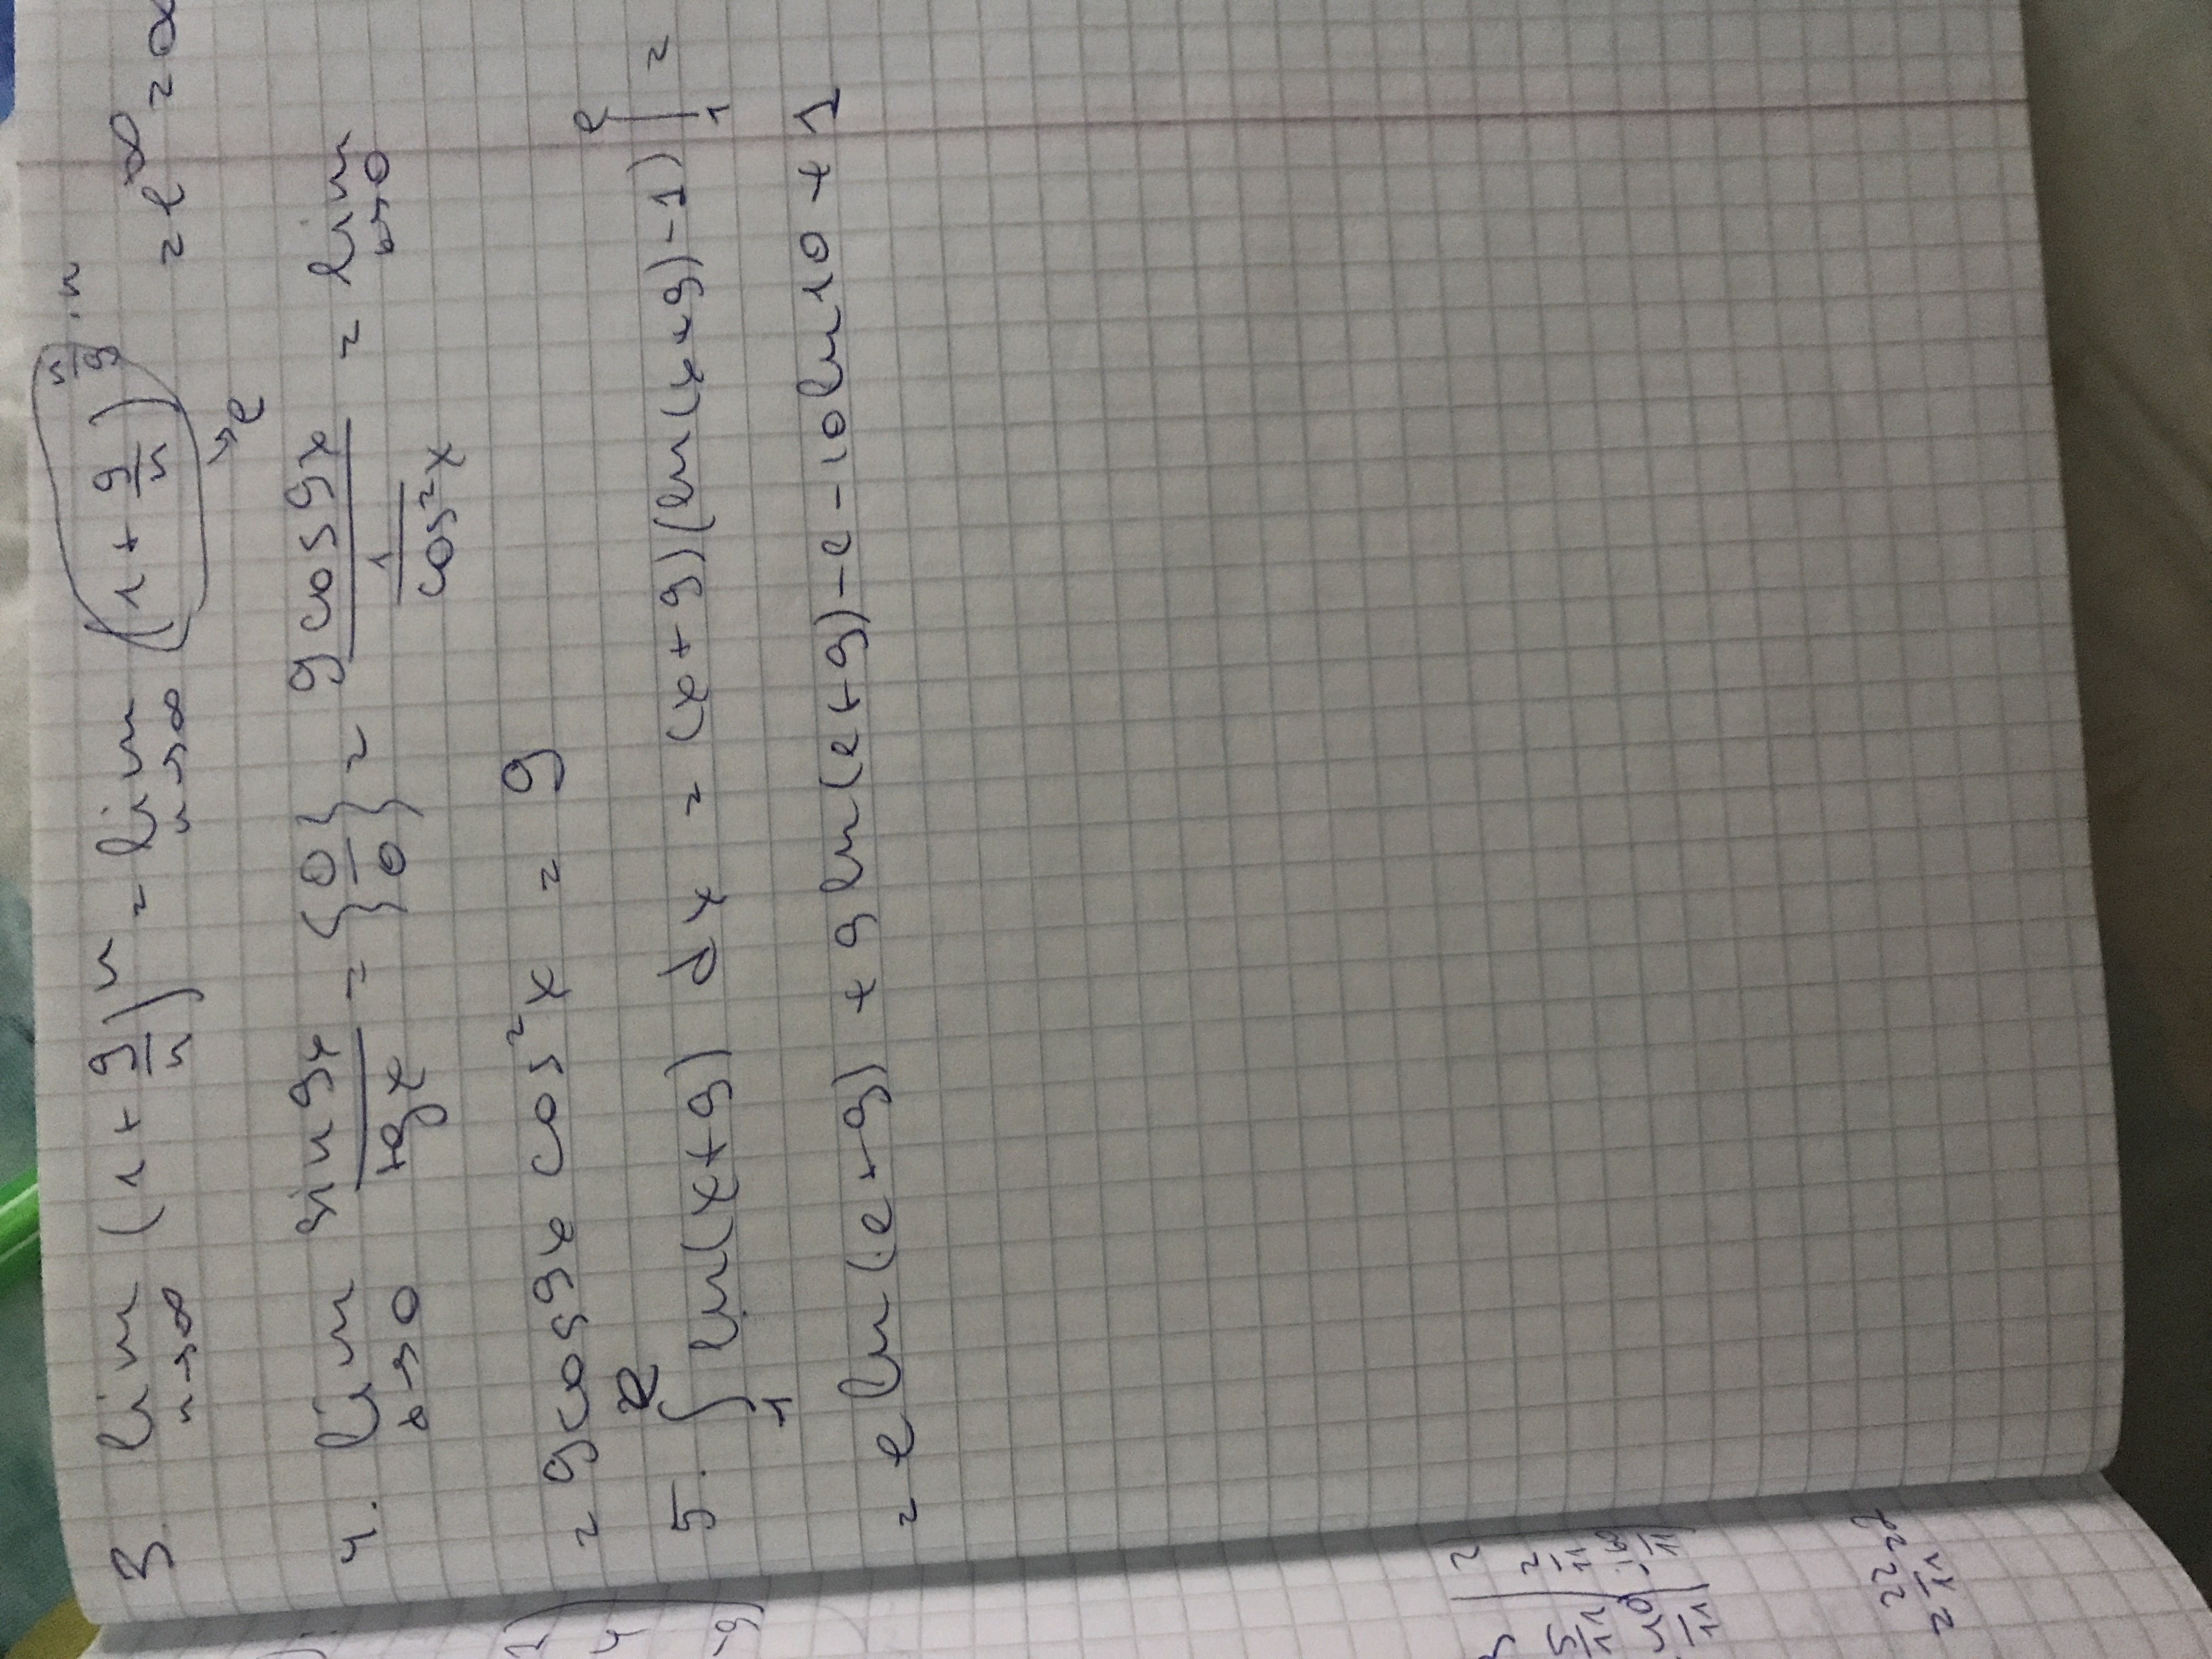 3. lim n→∞ (1 + 9/n)^n = lim n→∞ (1 + 9/n)^(n/9 · n) = e^∞ = ∞
→ e
4. lim x→0 sin 9x / tg x = {0/0} = 9 cos 9x / (1/cos²x) = lim x→0
= 9 cos 9x cos²x = 9
5. ∫₁ᵉ ln(x+9) dx = (x+9)(ln(x+9)-1) |₁ᵉ =
= e ln(e+9) + 9 ln(e+9) - e - 10 ln 10 + 1